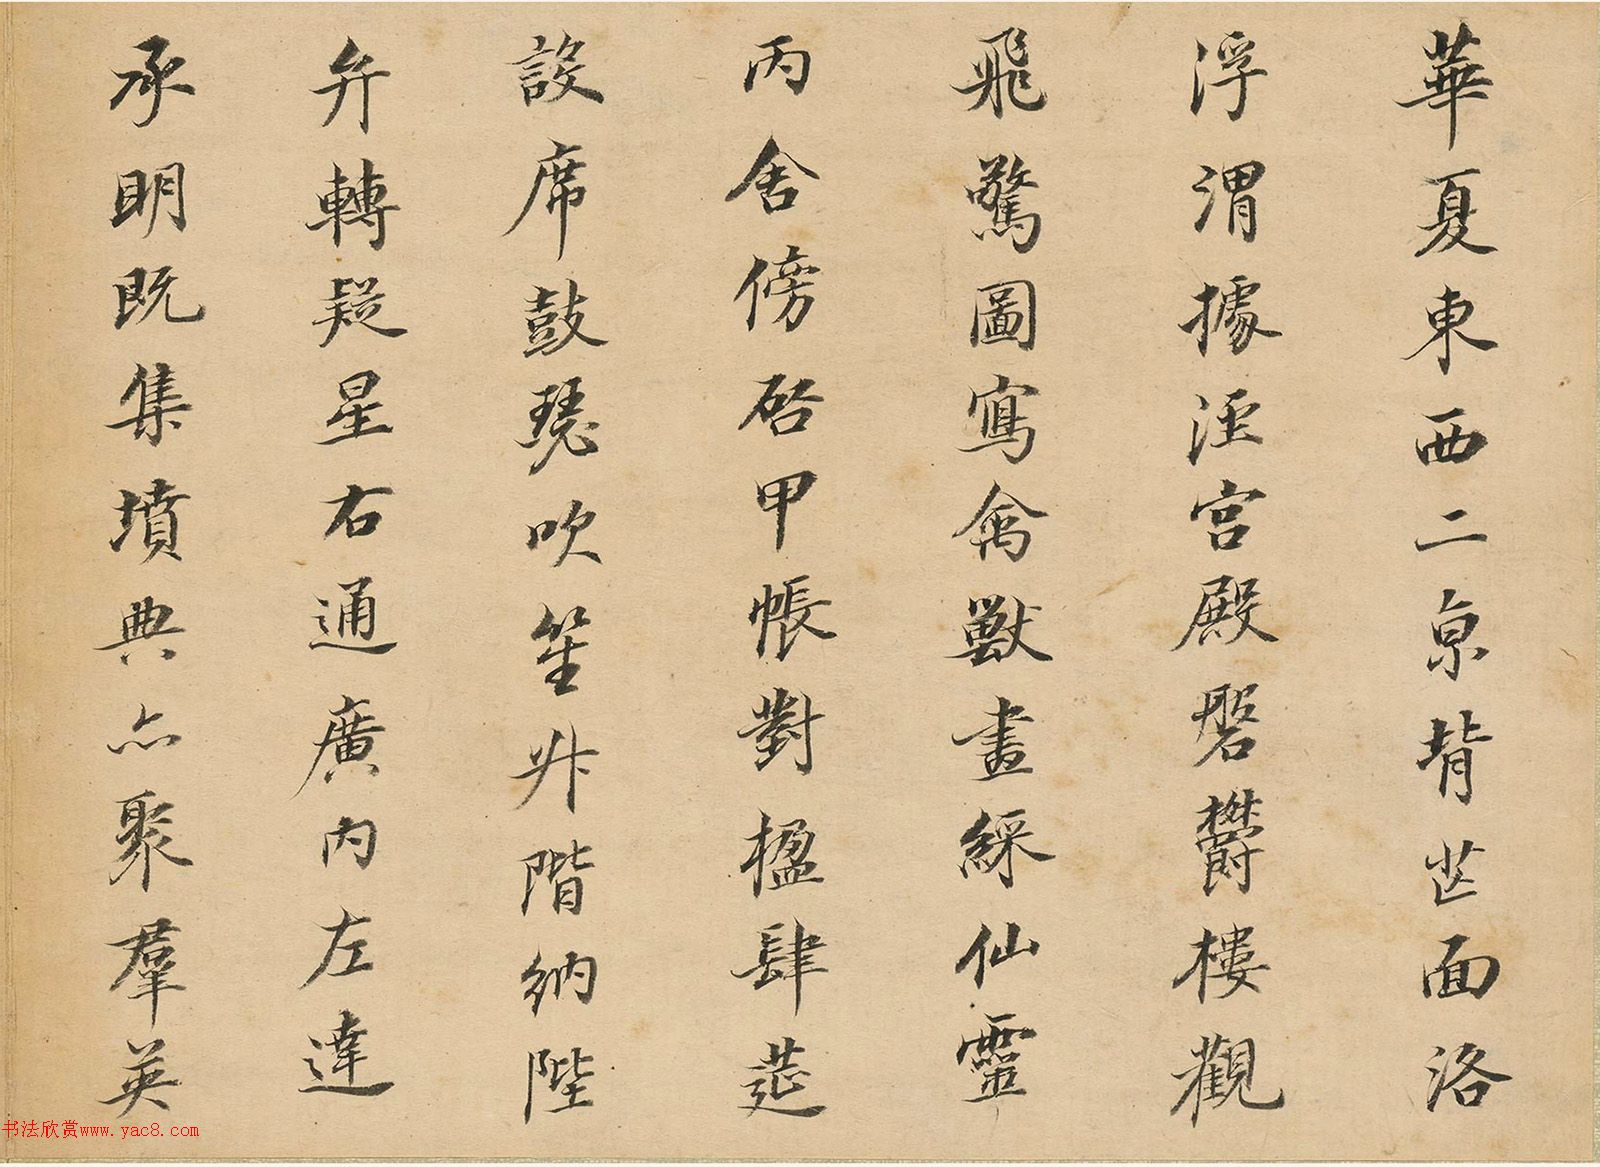 華夏東西二京背芒面洛
浮渭據涇宮殿磐鬱樓觀
飛驚圖寫禽獸畫綵仙靈
丙舍傍啓甲帳對楹肆筵
設席鼓瑟吹笙升階納陛
弁轉疑星右通廣內左達
承明既集墳典亦聚羣英
书法欣赏www.yac8.com